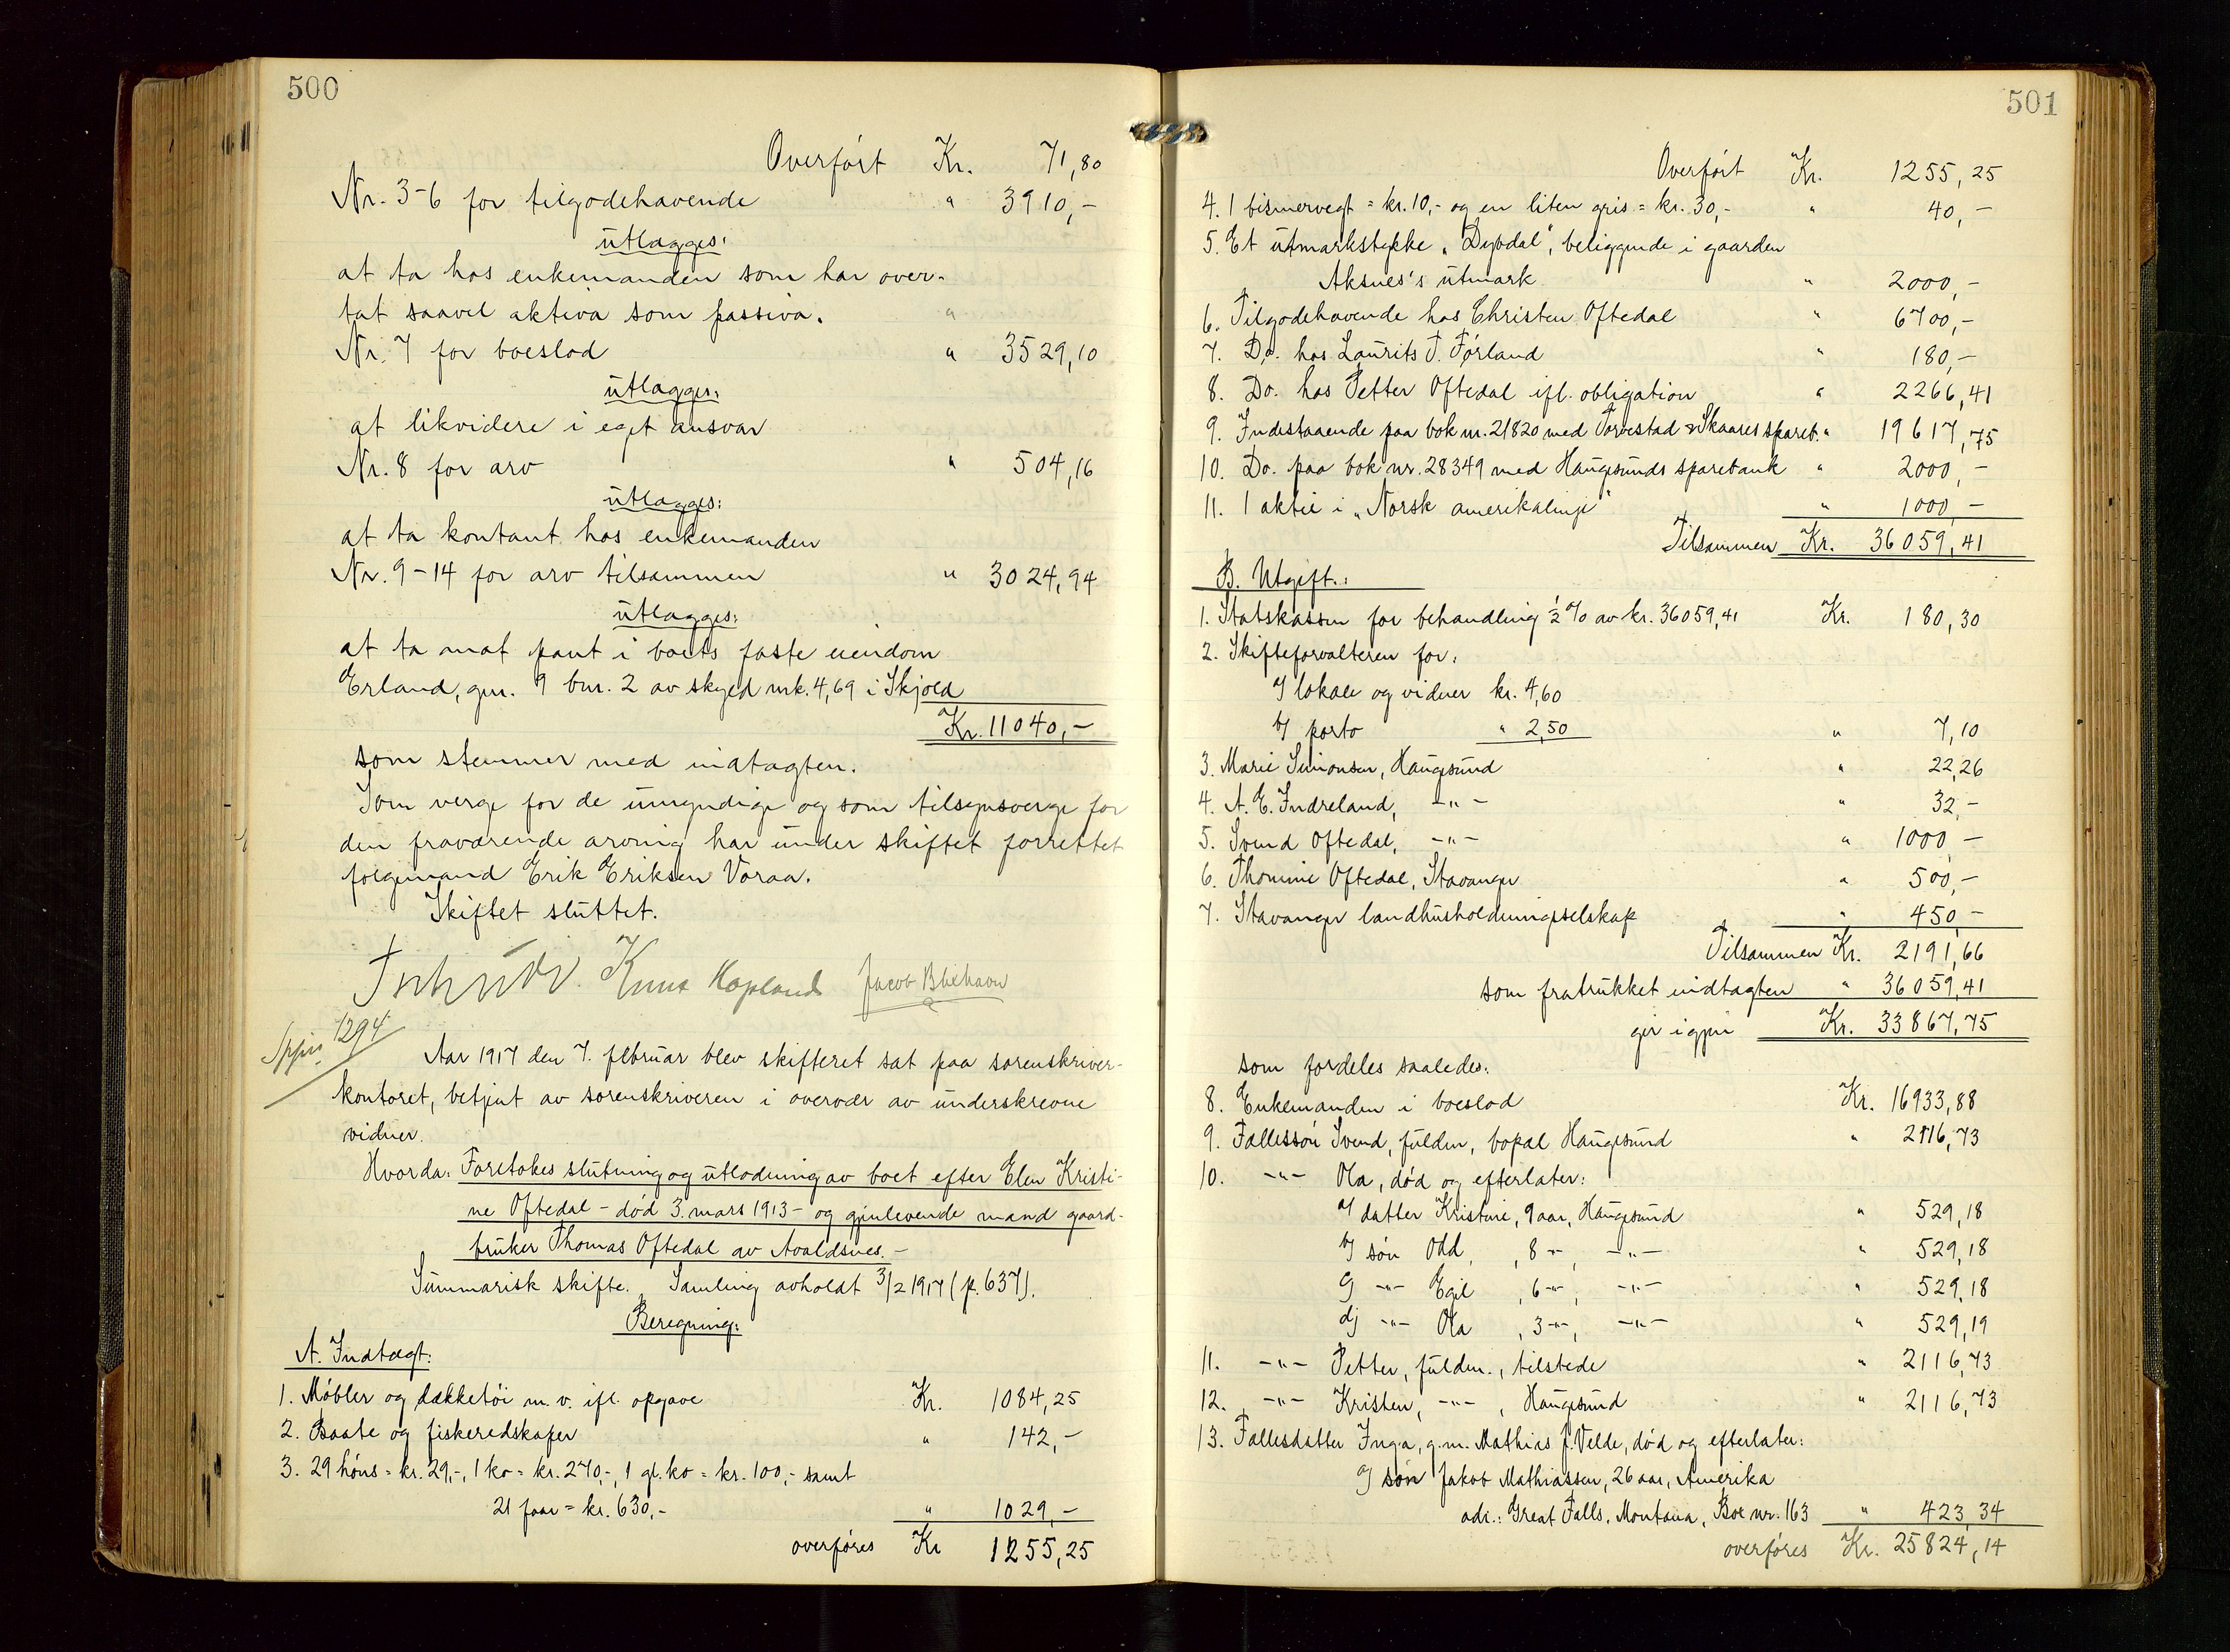 500
Overført Kr. 71,80
Nr. 3-6 for tilgodehavende " 3910,-
utlægges:
at ta hos enkemanden som har over-
tat saavel aktiva som passiva. "
Nr. 7 for boeslod " 3529,10
utlægges:
at likvidere i eget ansvar
Nr. 8 for arv " 504,16
utlægges:
at ta kontant hos enkemanden
Nr. 9-14 for arv tilsammen " 3024,94
utlægges:
at ta mot pant i boets faste eiendom
Erland, gnr. 9 bnr. 2 av skyld mrk. 4,69 i Skjold
Kr. 11040,-
som stemmer med indtægten.
Som verge for de umyndige og som tilsynsverge for
den fraværende arving har under skiftet forrettet
følgemand Erik Eriksen Voraa.
Skiftet sluttet.
Knut Hapland Jacob Blikhavn
1294
Aar 1917 den 7. februar blev skifteret sat paa sorenskriver-
kontoret, betjent av sorenskriveren i overvær av underskrevne
vidner.
Hvorda: Foretokes slutning og utlodning av boet efter Elen Kristi-
ne Oftedal - død 3. mars 1913 - og gjenlevende mand gaard-
bruker Thomas Oftedal av Avaldsnes. -
Summarisk skifte. Samling avholdt 3/2 1917 (p. 637).
Beregning:
A. Indtægt:
1. Møbler og dækketøi m. v. ifl. opgave Kr. 1084,25
2. Baate og fiskeredskaper " 142,-
3. 29 høns = kr. 29,-, 1 ko = kr. 270,-, 1 gl. ko = kr. 100,- samt
21 faar = kr. 630,- " 1029,-
overføres Kr 1255,25
501
Overført Kr. 1255,25
4. 1 bismervegt = kr. 10,- og en liten gris = kr. 30,- " 40,-
5. Et utmarkstykke "Dybdal", beliggende i gaarden
Aksnes's utmark " 2000,-
6. Tilgodehavende hos Christen Oftedal " 6700,-
7. Do. hos Laurits T. Førland " 180,-
8. Do. hos Petter Oftedal ifl. obligation " 2266,41
9. Indestaaende paa bok nr. 21820 med Torvestad & Skaares spareb. " 19617,75
10. Do. paa bok nr. 28349 med Haugesunds sparebank " 2000,-
11. 1 aktie i "Norsk amerikalinje" " 1000,-
Tilsammen Kr. 36059,41
B. Utgift.:
1. Statskassen for behandling ½ % av kr. 36059,41 Kr. 180,30
2. Skifteforvalteren for:
a/ lokale og vidner kr. 4,60
b/ porto " 2,50 " 7,10
3. Marie Simonsen, Haugesund " 22,26
4. A. E. Indreland, -"- " 32,-
5. Svend Oftedal, -"- " 1000,-
6. Thomine Oftedal, Stavanger " 500,-
7. Stavanger landhusholdningsselskap " 450,-
Tilsammen Kr. 2191,66
som fratrukket indtægten " 36059,41
gir igjen Kr. 33867,75
som fordeles saaledes:
8. Enkemanden i boeslod Kr. 16933,88
9. Fællessøn Svend, fuldm, bopæl Haugesund " 2116,73
10. -"- Ola, død og efterlater:
a/ datter Kristine, 9 aar, Haugesund " 529,18
b/ søn Odd, , 8 -"-, -"- " 529,18
c/ -"- Egil , 6 -"-, -"- " 529,18
d/ -"- Ola , 3 -"-, -"- " 529,19
11. -"- Petter, fuldm., tilstede " 2116,73
12. -"- Kristen, -"-, Haugesund " 2116,73
13. Fællesdatter Inga, g.m. Mathias J. Velde, død og efterlater:
a/ søn Jakob Mathiassen, 26 aar, Amerika
adr.: Great Falls, Montana, Box nr. 163 " 423,34
overføres Kr. 25824,14